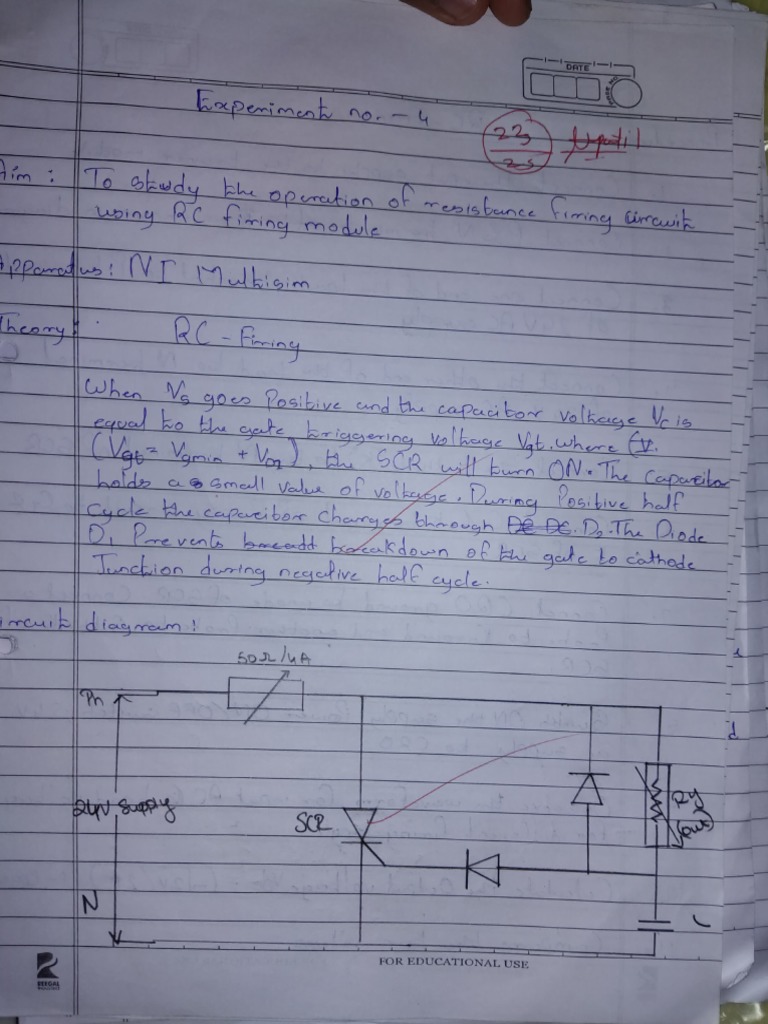 DATE
Experiment no. - 4
23
25
Aim : To study the operation of resistance firing circuit
using RC firing module
Apparatus : NI Multisim
Theory : RC - Firing
When Vs goes Positive and the capacitor voltage Vc is
equal to the gate triggering voltage Vgt. where (V.
(Vgt = Vgmin + VD1), the SCR will turn ON. The capacitor
holds a small value of voltage. During Positive half
cycle the capacitor charges through D2. The Diode
D1 Prevents breakdown of the gate to cathode
Junction during negative half cycle.
circuit diagram :
50Ω/4A
Ph
24V supply
SCR
R
N
C
REEGAL
FOR EDUCATIONAL USE